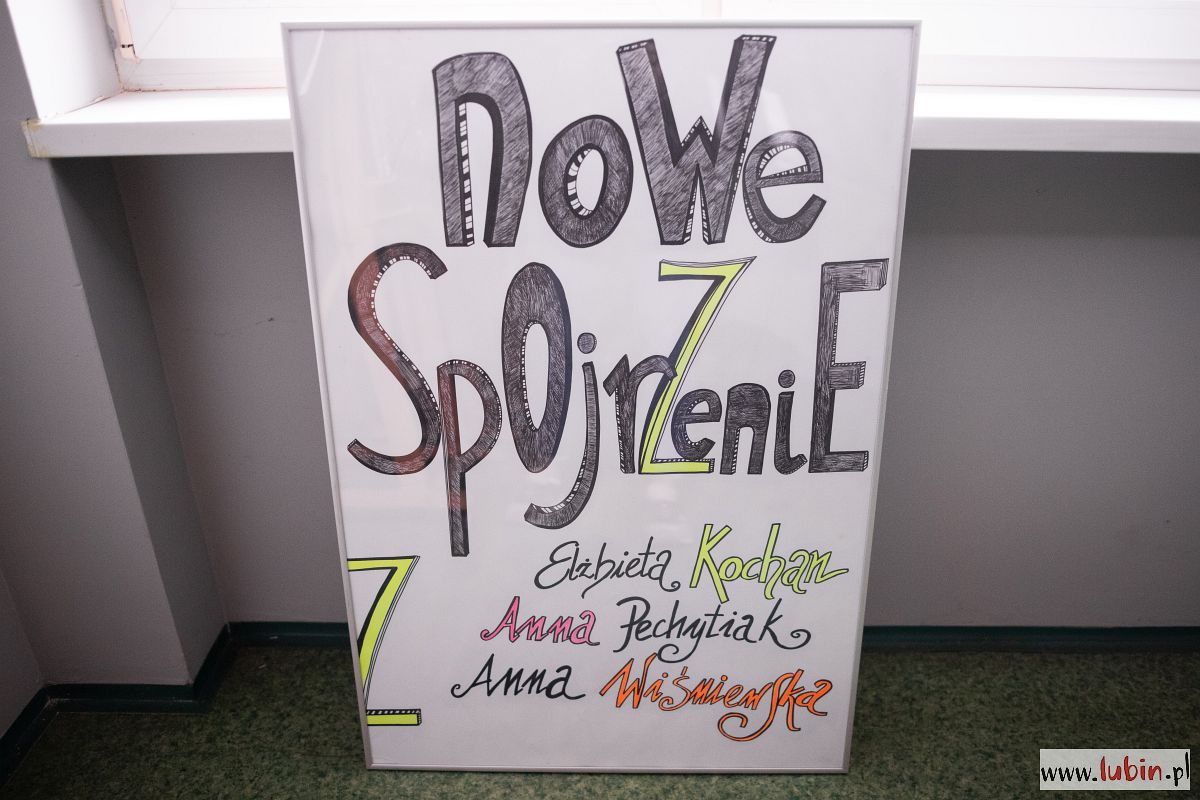 noWe
SpOjrZeniE
Elżbieta Kochan
Anna Pechytiak
Anna Wiśniewska
Z
www.lubin.pl